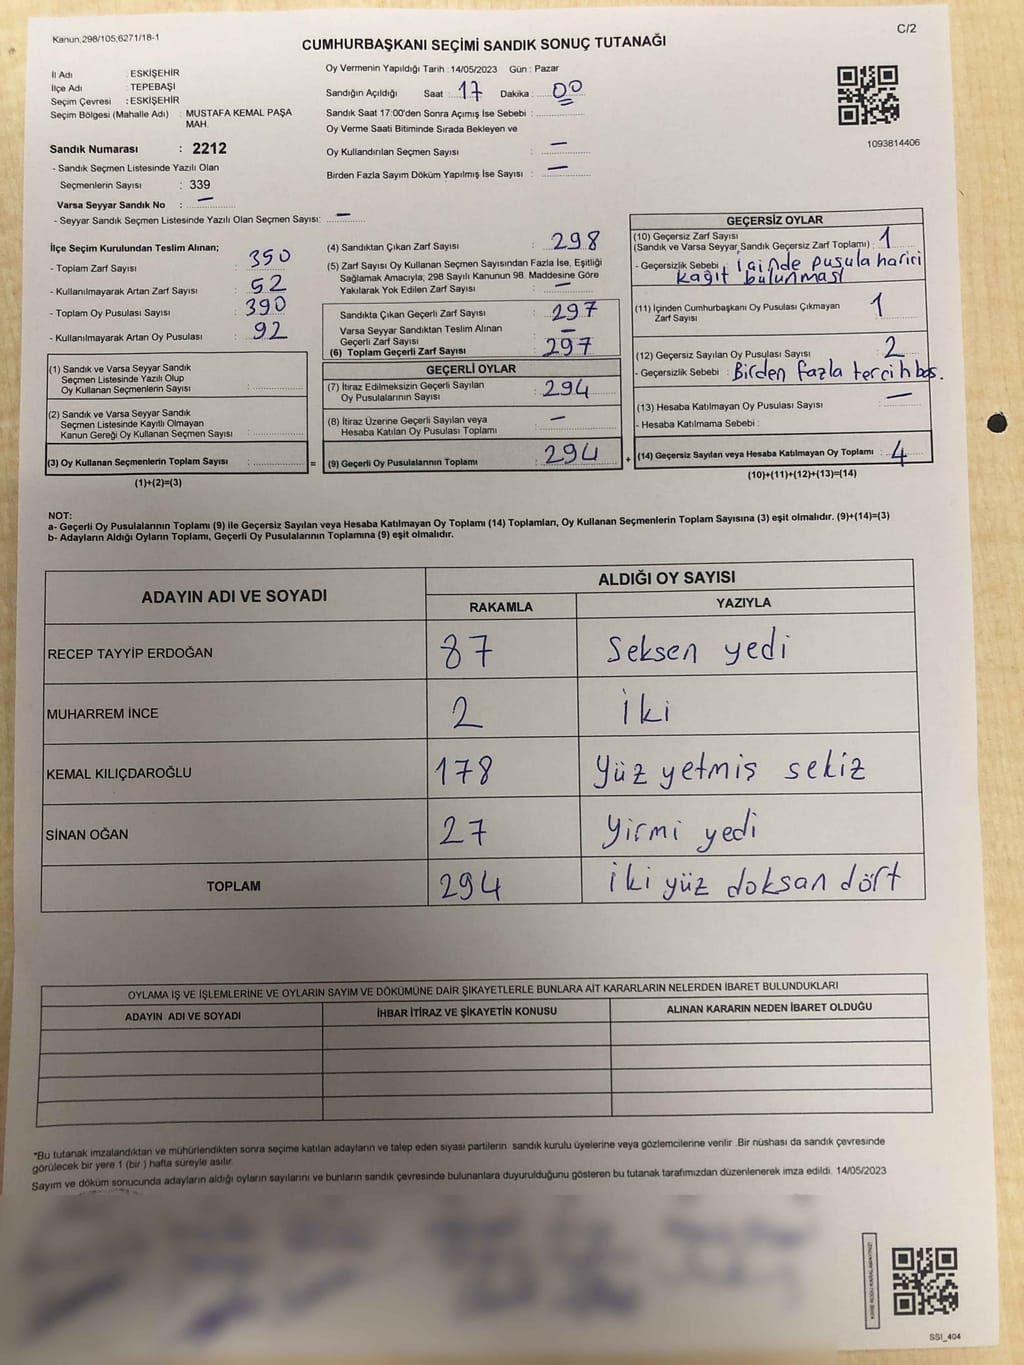 Kanun.298/105,6271/18-1
C/2
CUMHURBAŞKANI SEÇİMİ SANDIK SONUÇ TUTANAĞI
İl Adı : ESKİŞEHİR
İlçe Adı : TEPEBAŞI
Seçim Çevresi : ESKİŞEHİR
Seçim Bölgesi (Mahalle Adı) : MUSTAFA KEMAL PAŞA
MAH.
Sandık Numarası : 2212
- Sandık Seçmen Listesinde Yazılı Olan
Seçmenlerin Sayısı : 339
Varsa Seyyar Sandık No : —
- Seyyar Sandık Seçmen Listesinde Yazılı Olan Seçmen Sayısı: —
Oy Vermenin Yapıldığı Tarih : 14/05/2023 Gün : Pazar
Sandığın Açıldığı Saat : 17 Dakika : 00
Sandık Saat 17:00'den Sonra Açımış İse Sebebi :
Oy Verme Saati Bitiminde Sırada Bekleyen ve
Oy Kullandırılan Seçmen Sayısı : —
Birden Fazla Sayım Döküm Yapılmış İse Sayısı : —
1093814406
İlçe Seçim Kurulundan Teslim Alınan;
- Toplam Zarf Sayısı : 350
- Kullanılmayarak Artan Zarf Sayısı : 52
- Toplam Oy Pusulası Sayısı : 390
- Kullanılmayarak Artan Oy Pusulası : 92
(1) Sandık ve Varsa Seyyar Sandık
Seçmen Listesinde Yazılı Olup
Oy Kullanan Seçmenlerin Sayısı :
(2) Sandık ve Varsa Seyyar Sandık
Seçmen Listesinde Kayıtlı Olmayan
Kanun Gereği Oy Kullanan Seçmen Sayısı :
(3) Oy Kullanan Seçmenlerin Toplam Sayısı : =
(1)+(2)=(3)
(4) Sandıktan Çıkan Zarf Sayısı : 298
(5) Zarf Sayısı Oy Kullanan Seçmen Sayısından Fazla İse, Eşitliği
Sağlamak Amacıyla; 298 Sayılı Kanunun 98. Maddesine Göre
Yakılarak Yok Edilen Zarf Sayısı : —
Sandıkta Çıkan Geçerli Zarf Sayısı : 297
Varsa Seyyar Sandıktan Teslim Alınan
Geçerli Zarf Sayısı : —
(6) Toplam Geçerli Zarf Sayısı : 297
GEÇERLİ OYLAR
(7) İtiraz Edilmeksizin Geçerli Sayılan
Oy Pusulalarının Sayısı : 294
(8) İtiraz Üzerine Geçerli Sayılan veya
Hesaba Katılan Oy Pusulası Toplamı : —
(9) Geçerli Oy Pusulalarının Toplamı : 294 +
GEÇERSİZ OYLAR
(10) Geçersiz Zarf Sayısı
(Sandık ve Varsa Seyyar Sandık Geçersiz Zarf Toplamı) : 1
- Geçersizlik Sebebi : İçinde pusula harici
kağıt bulunması
(11) İçinden Cumhurbaşkanı Oy Pusulası Çıkmayan
Zarf Sayısı : 1
(12) Geçersiz Sayılan Oy Pusulası Sayısı : 2
- Geçersizlik Sebebi : Birden fazla tercih bas.
(13) Hesaba Katılmayan Oy Pusulası Sayısı : —
- Hesaba Katılmama Sebebi :
(14) Geçersiz Sayılan veya Hesaba Katılmayan Oy Toplamı : 4
(10)+(11)+(12)+(13)=(14)
NOT:
a- Geçerli Oy Pusulalarının Toplamı (9) ile Geçersiz Sayılan veya Hesaba Katılmayan Oy Toplamı (14) Toplamları, Oy Kullanan Seçmenlerin Toplam Sayısına (3) eşit olmalıdır. (9)+(14)=(3)
b- Adayların Aldığı Oyların Toplamı, Geçerli Oy Pusulalarının Toplamına (9) eşit olmalıdır.
ADAYIN ADI VE SOYADI
ALDIĞI OY SAYISI
RAKAMLA YAZIYLA
RECEP TAYYİP ERDOĞAN 87 Seksen yedi
MUHARREM İNCE 2 İki
KEMAL KILIÇDAROĞLU 178 Yüz yetmiş sekiz
SİNAN OĞAN 27 Yirmi yedi
TOPLAM 294 İki yüz doksan dört
OYLAMA İŞ VE İŞLEMLERİNE VE OYLARIN SAYIM VE DÖKÜMÜNE DAİR ŞİKAYETLERLE BUNLARA AİT KARARLARIN NELERDEN İBARET BULUNDUKLARI
ADAYIN ADI VE SOYADI İHBAR İTİRAZ VE ŞİKAYETİN KONUSU ALINAN KARARIN NEDEN İBARET OLDUĞU
*Bu tutanak imzalandıktan ve mühürlendikten sonra seçime katılan adayların ve talep eden siyasi partilerin sandık kurulu üyelerine veya gözlemcilerine verilir .Bir nüshası da sandık çevresinde
görülecek bir yere 1 (bir ) hafta süreyle asılır.
Sayım ve döküm sonucunda adayların aldığı oyların sayılarını ve bunların sandık çevresinde bulunanlara duyurulduğunu gösteren bu tutanak tarafımızdan düzenlenerek imza edildi. 14/05/2023
SSİ_404